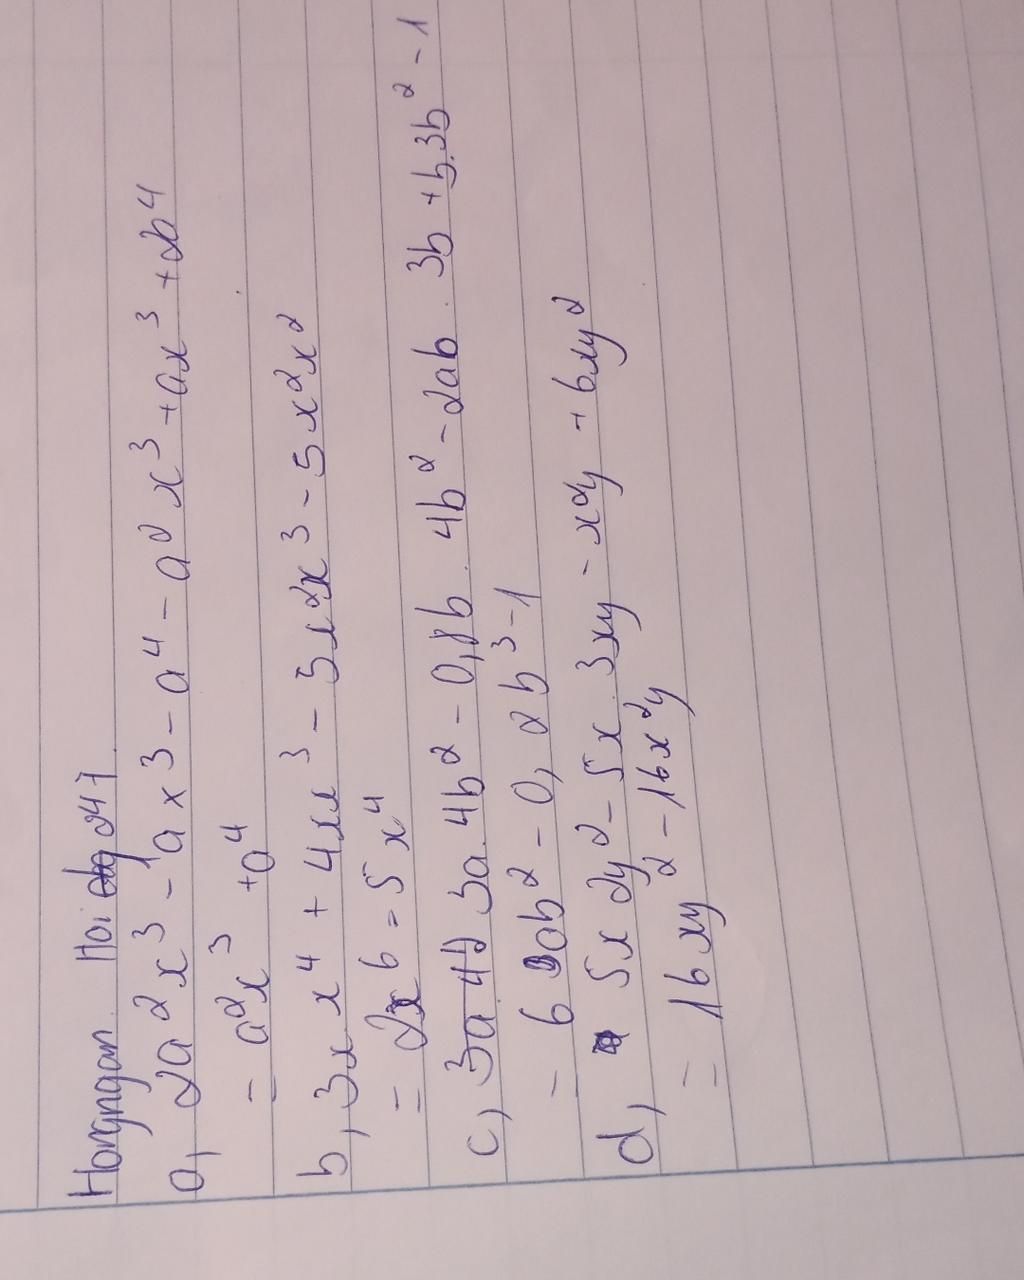 Hongngan Hoi 247
a, 2a²x³ - ax3 - a⁴ - a²x³ + ax³ + 2b⁴
= a²x³ + a⁴
b, 3x x⁴ + 4xx³ - 5x2x³ - 5x²x²
= 2x⁶ = 5x⁴
c, 3a. 4b² - 0,8b. 4b² - 2ab. 3b + b.3b² - 1
= 6ab² - 0,2b³ - 1
d, 5x 2y² - 5x. 3xy - x²y + 6xy²
= 16xy² - 16x²y